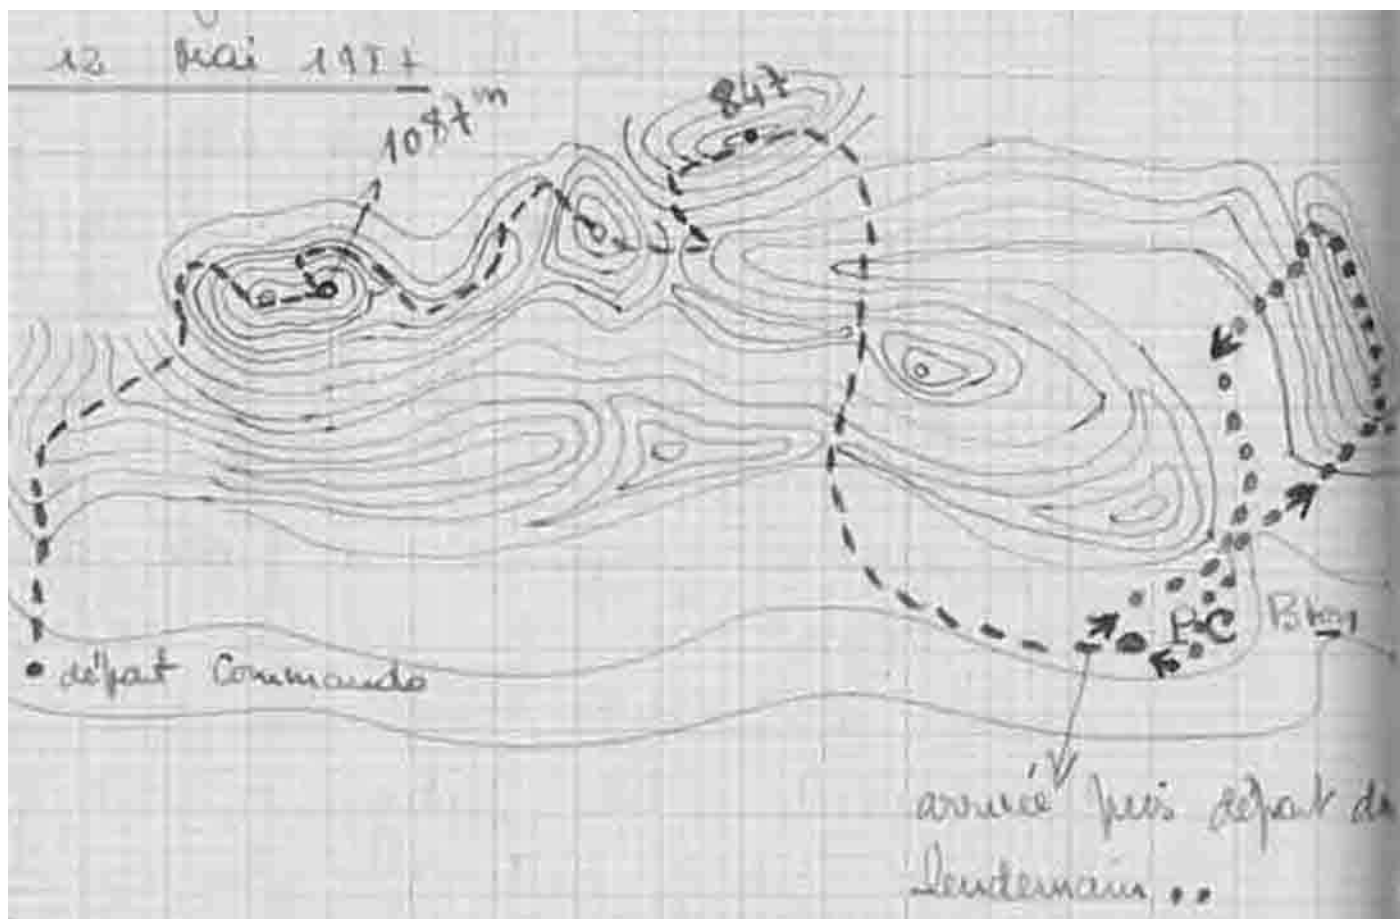 12 Mai
1087m
847
P.C
départ Commando
arrivée puis départ du
lendemain ..